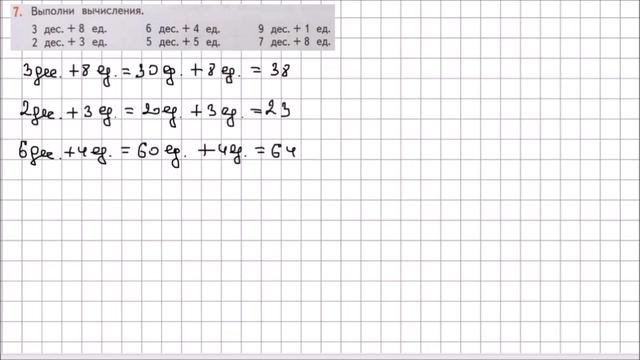 7. Выполни вычисления.
3 дес. + 8 ед. 6 дес. + 4 ед. 9 дес. + 1 ед.
2 дес. + 3 ед. 5 дес. + 5 ед. 7 дес. + 8 ед.
3 дес. + 8 ед. = 30 ед. + 8 ед. = 38
2 дес. + 3 ед. = 20 ед. + 3 ед. = 23
6 дес. + 4 ед. = 60 ед. + 4 ед. = 64